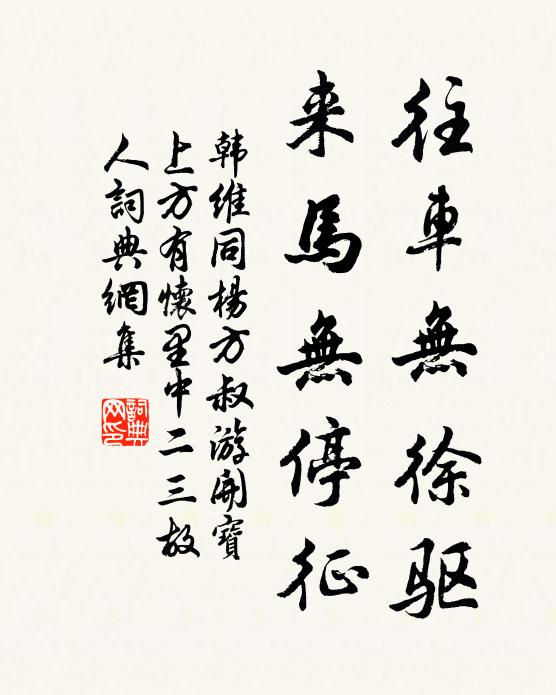 往車無徐驱
来馬無停征
韩维同楊方叔游開寶
上方有懷里中二三故
人詞典網集
詞典網印